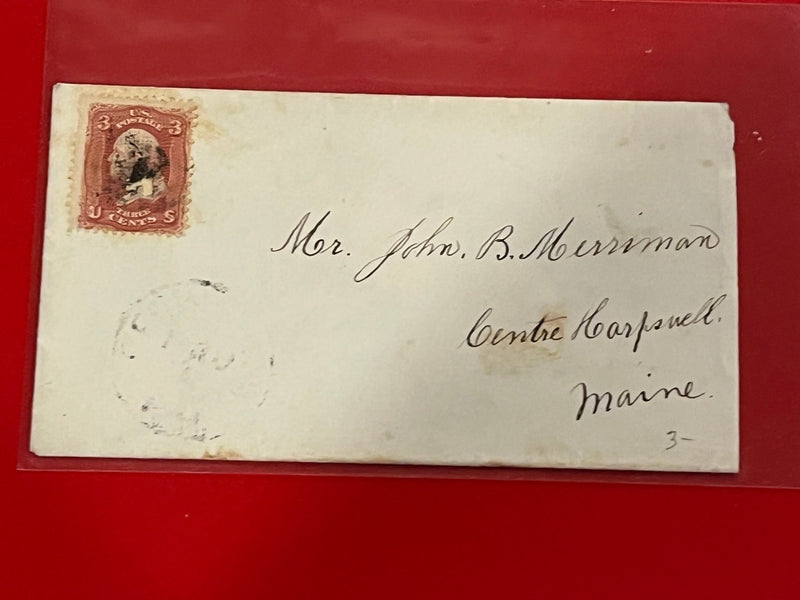 U.S.
POSTAGE
3 3
THREE
U CENTS S
Mr. John. B. Merriman
Centre Harpswell.
Maine.
3-